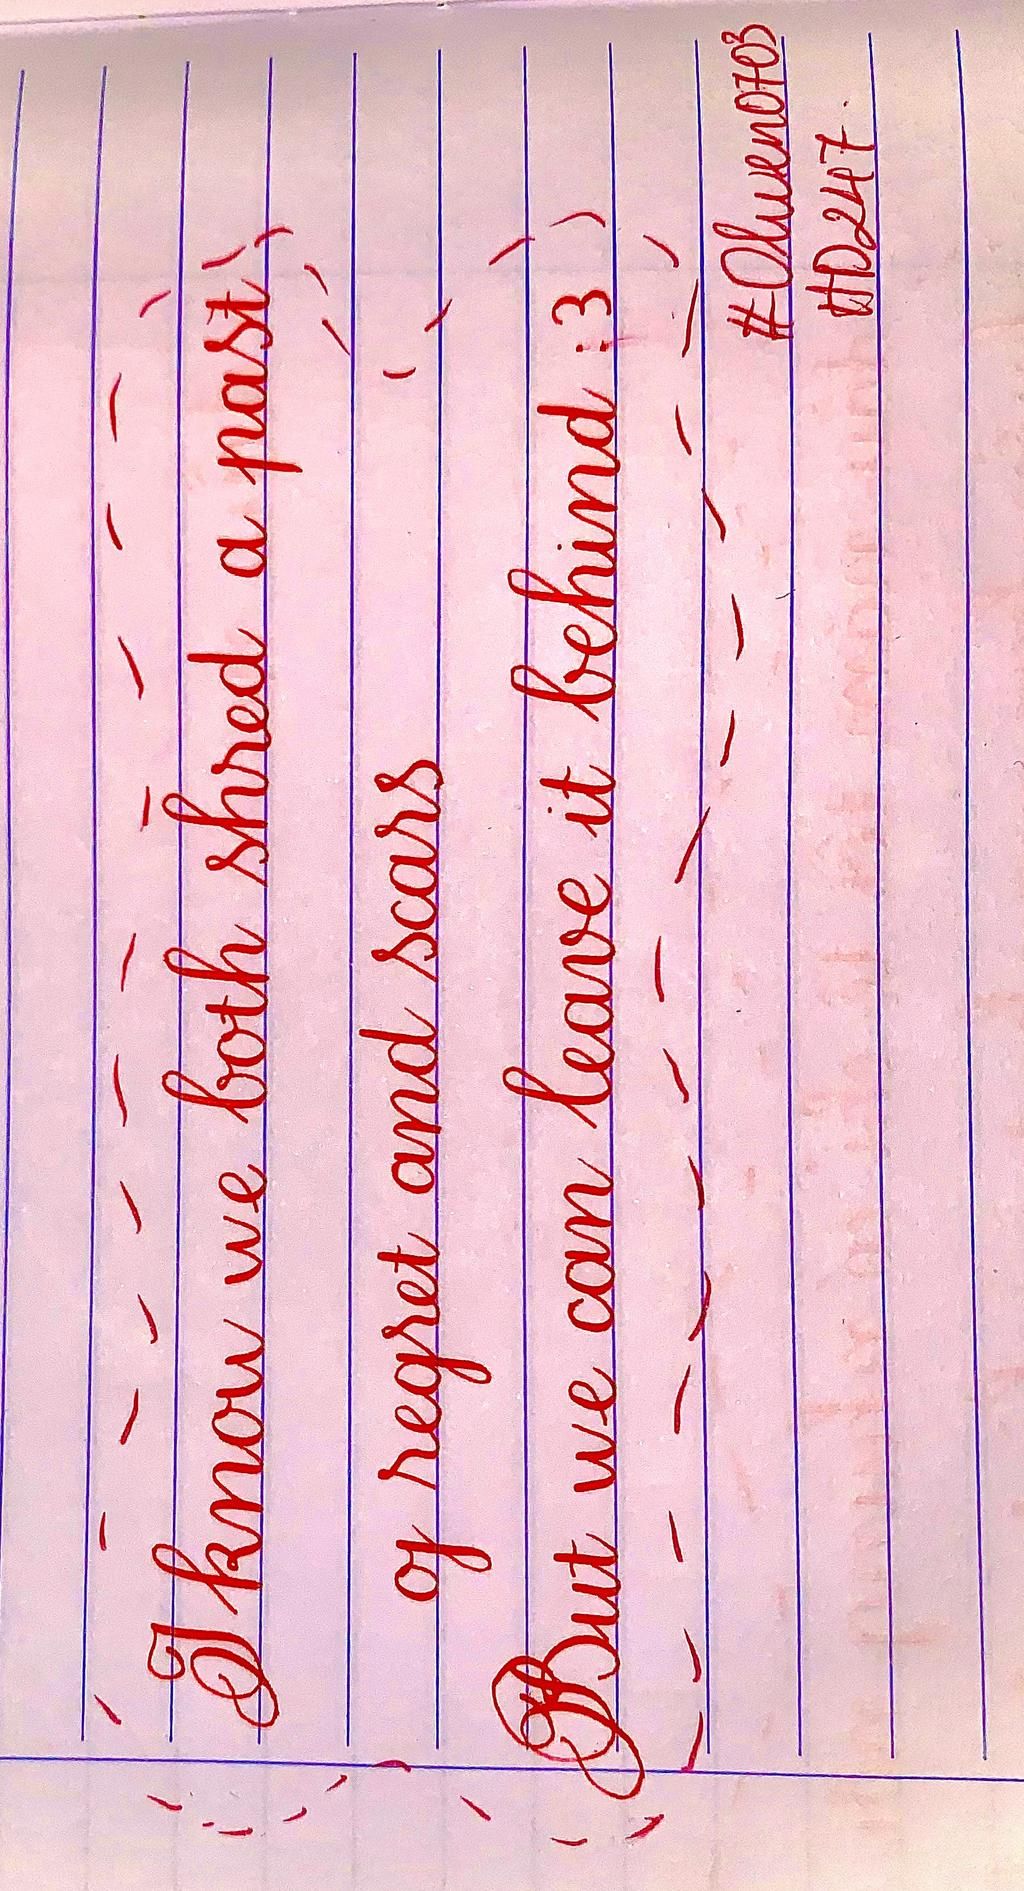 I know we both shred a past
of regret and scars
But we can leave it behind :3
#Olwen0703
#D247.